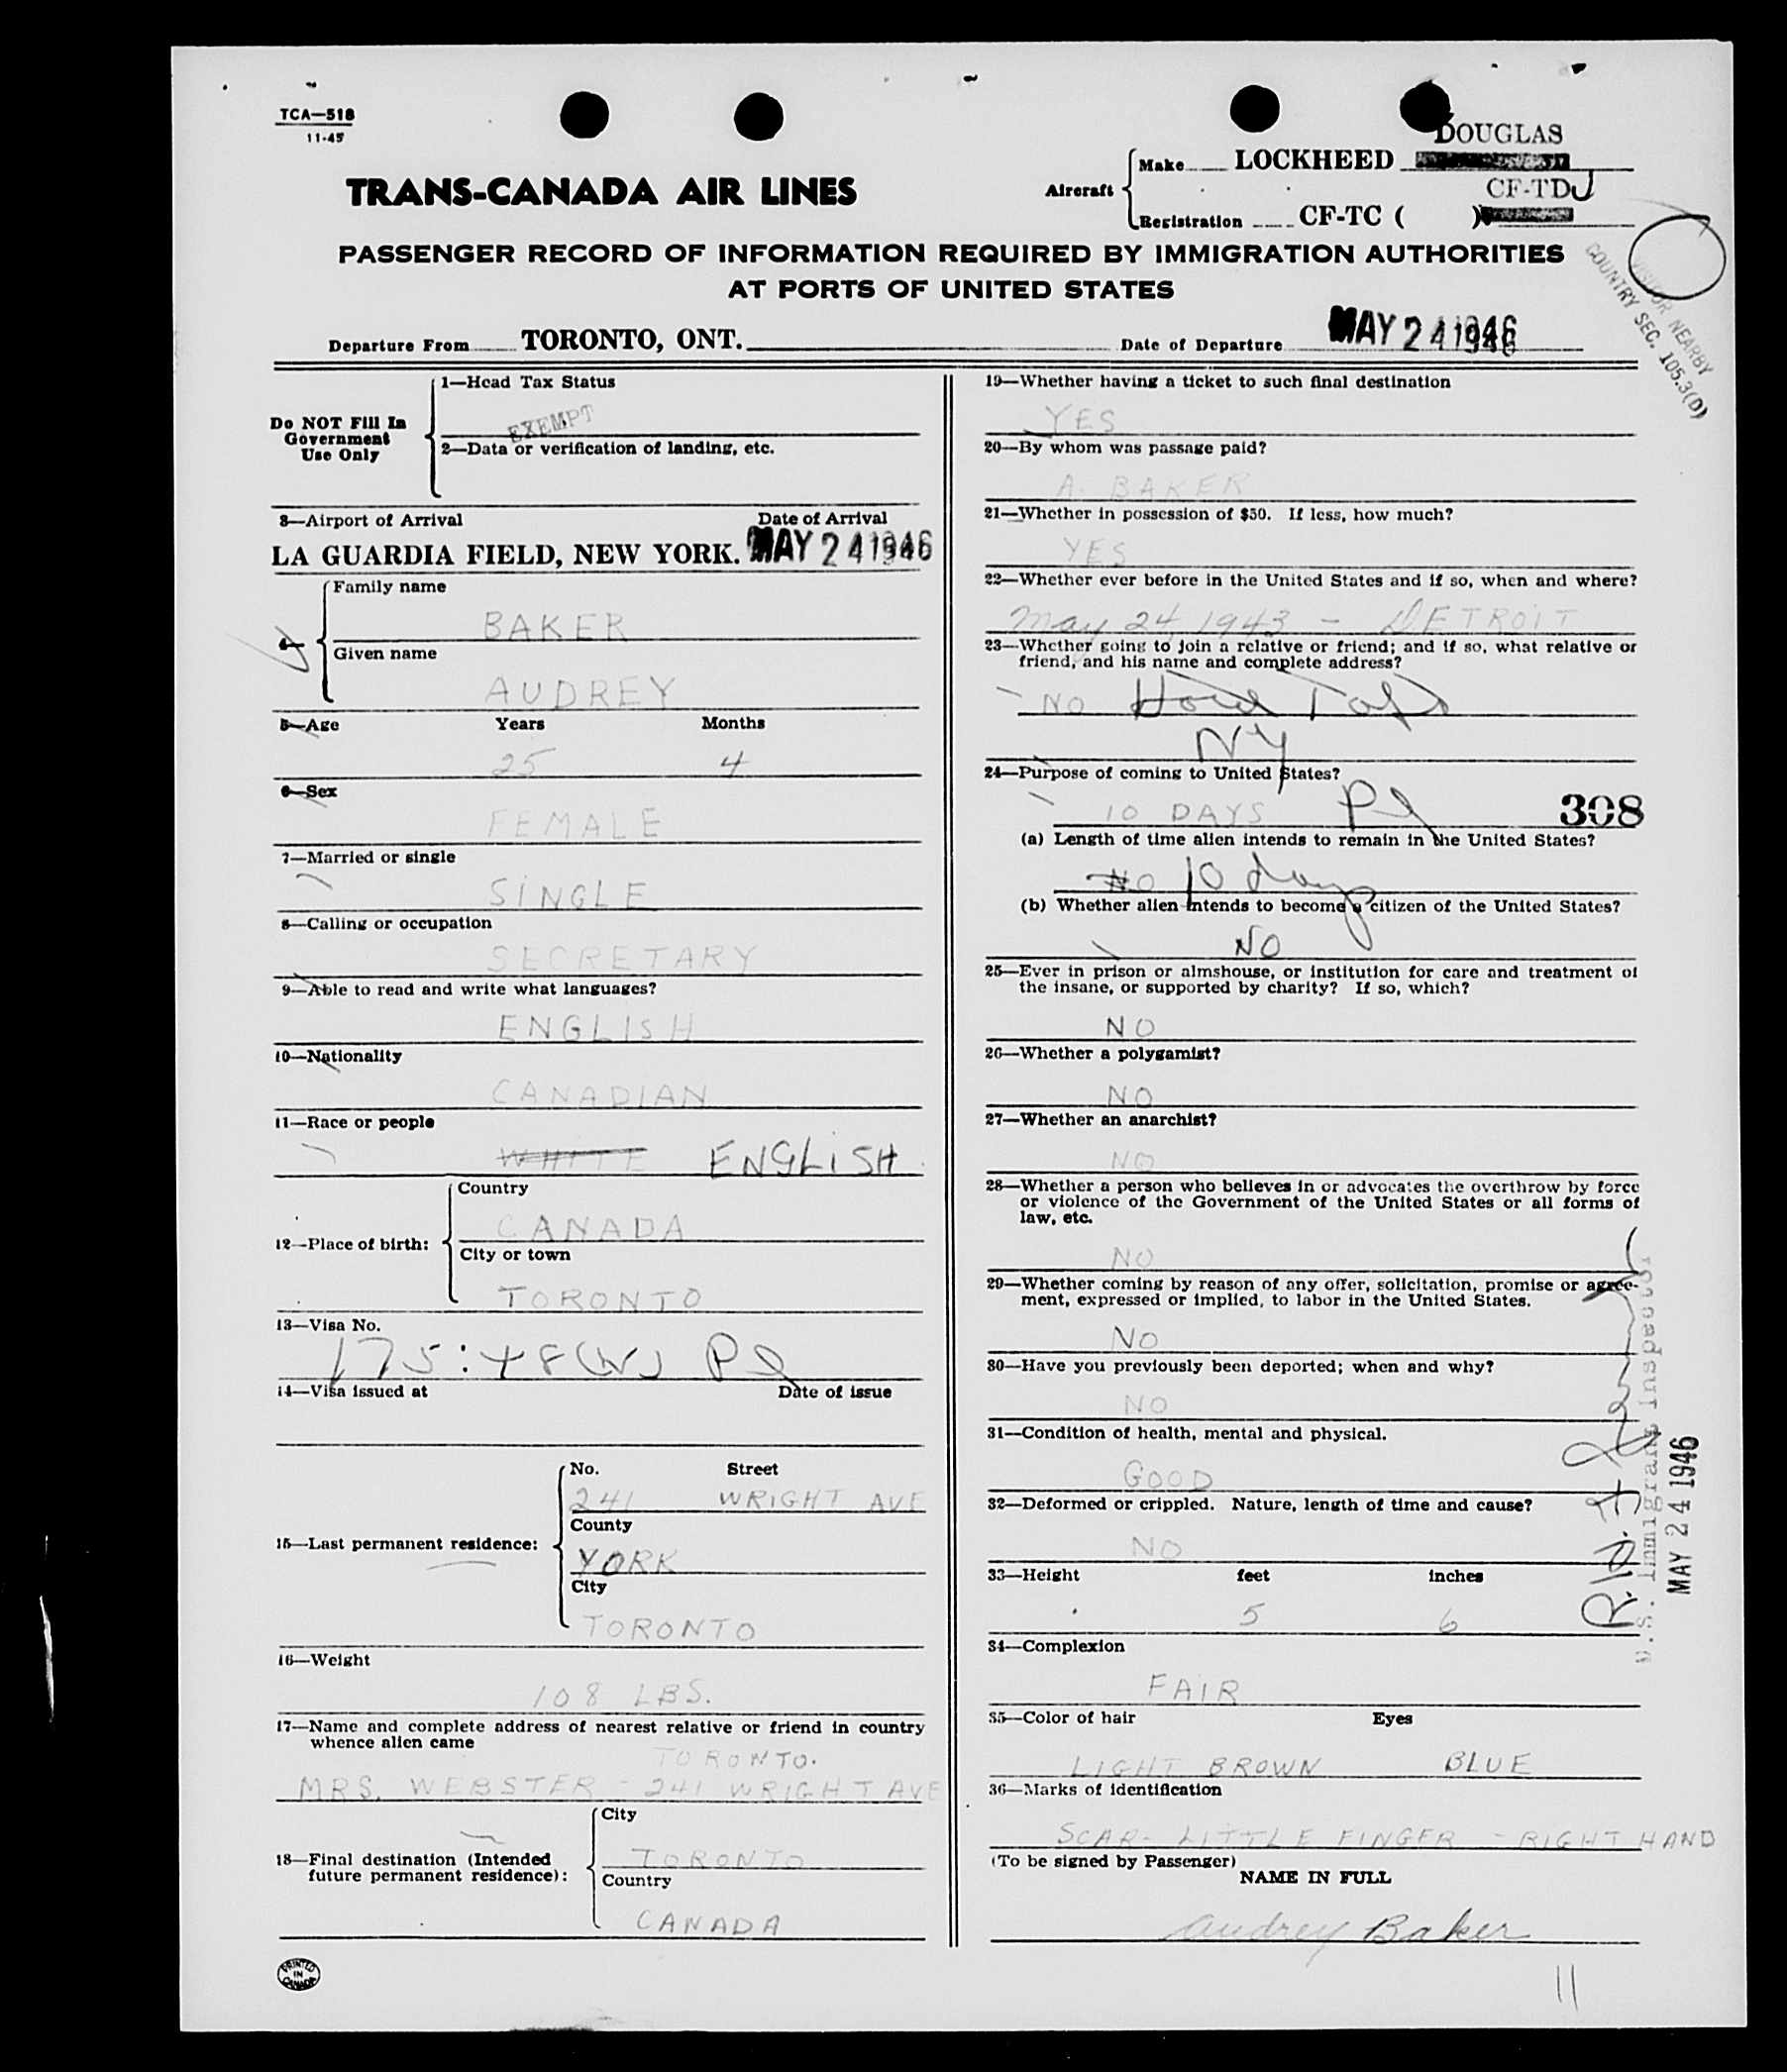 TCA—518
11-45
DOUGLAS
Aircraft
Make LOCKHEED
CF-TDJ
Registration CF-TC ( )
TRANS-CANADA AIR LINES
PASSENGER RECORD OF INFORMATION REQUIRED BY IMMIGRATION AUTHORITIES
AT PORTS OF UNITED STATES
VISITOR NEARBY
COUNTRY SEC. 105.3(D)
Departure From TORONTO, ONT. Date of Departure MAY 24 1946
Do NOT Fill In
Government
Use Only
1—Head Tax Status
EXEMPT
2—Data or verification of landing, etc.
3—Airport of Arrival Date of Arrival
LA GUARDIA FIELD, NEW YORK. MAY 24 1946
4—
Family name
BAKER
Given name
AUDREY
5—Age Years Months
25 4
6—Sex
FEMALE
7—Married or single
SINGLE
8—Calling or occupation
SECRETARY
9—Able to read and write what languages?
ENGLISH
10—Nationality
CANADIAN
11—Race or people
WHITE ENGLISH
12—Place of birth:
Country
CANADA
City or town
TORONTO
13—Visa No.
175:48(W) Pl
14—Visa issued at Date of issue
15—Last permanent residence:
No. Street
241 WRIGHT AVE
County
YORK
City
TORONTO
16—Weight
108 LBS.
17—Name and complete address of nearest relative or friend in country
whence alien came
TORONTO.
MRS. WEBSTER - 241 WRIGHT AVE
18—Final destination (Intended
future permanent residence):
City
TORONTO
Country
CANADA
PRINTED
IN
CANADA
19—Whether having a ticket to such final destination
YES
20—By whom was passage paid?
A. BAKER
21—Whether in possession of $50. If less, how much?
YES
22—Whether ever before in the United States and if so, when and where?
May 24, 1943 - DETROIT
23—Whether going to join a relative or friend; and if so, what relative or
friend, and his name and complete address?
NO Hotel Taft
NY
24—Purpose of coming to United States?
10 DAYS Pl 308
(a) Length of time alien intends to remain in the United States?
NO 10 days
(b) Whether alien intends to become a citizen of the United States?
NO
25—Ever in prison or almshouse, or institution for care and treatment of
the insane, or supported by charity? If so, which?
NO
26—Whether a polygamist?
NO
27—Whether an anarchist?
NO
28—Whether a person who believes in or advocates the overthrow by force
or violence of the Government of the United States or all forms of
law, etc.
NO
29—Whether coming by reason of any offer, solicitation, promise or agree-
ment, expressed or implied, to labor in the United States.
NO
30—Have you previously been deported; when and why?
NO
31—Condition of health, mental and physical.
GOOD
32—Deformed or crippled. Nature, length of time and cause?
NO
33—Height feet inches
5 6
34—Complexion
FAIR
35—Color of hair Eyes
LIGHT BROWN BLUE
36—Marks of identification
SCAR- LITTLE FINGER - RIGHT HAND
(To be signed by Passenger)
NAME IN FULL
Audrey Baker
11
U.S. Immigrant Inspector
MAY 24 1946